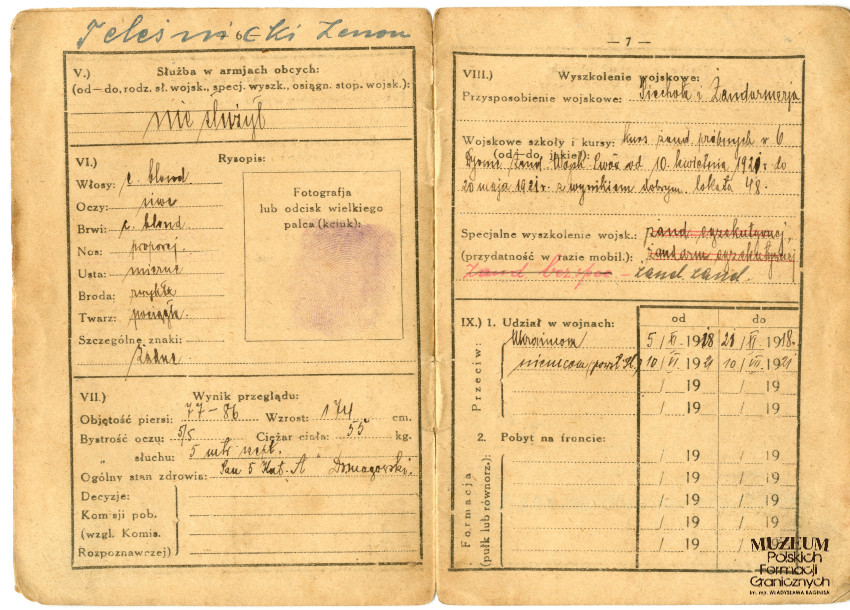 Teleśnicki Zenon
6
V.) Służba w armjach obcych:
(od—do, rodz. sł. wojsk., specj. wyszk., osiągn. stop. wojsk.):
nie służył
VI.) Rysopis:
Włosy: c. blond
Oczy: siwe
Brwi: c. blond
Nos: proporcj.
Usta: mierne
Broda: zwykła
Twarz: pociągła
Szczególne znaki:
Żadne
Fotografja
lub odcisk wielkiego
palca (kciuk):
VII.) Wynik przeglądu:
Objętość piersi: 77—86 Wzrost: 174 cm.
Bystrość oczu: 5/5 Ciężar ciała: 55 kg.
" słuchu: 5 mtr szept.
Ogólny stan zdrowia: Kat. "A"
Decyzje:
Komisji pob.
(wzgl. Komis.
Rozpoznawczej)
— 7 —
VIII.) Wyszkolenie wojskowe:
Przysposobienie wojskowe: Piechota i Żandarmerja
Wojskowe szkoły i kursy: Kurs żand. próbnych w 6
(od—do, jakie): Dyonie Żand. Wojsk. Lwów od 10. kwietnia 1921 do
20 maja 1921 r. z wynikiem dobrym. lokata 48.
Specjalne wyszkolenie wojsk.: żand egzekutywnej,
(przydatność w razie mobil.): żandarm egzekutywnej
żand — żand żand
IX.) 1. Udział w wojnach: od do
Przeciw:
Ukraincom 5/XI 1918 21/XI 1918.
niemcom 10/VI 1921 10/VII 1921
/ 19 / 19
/ 19 / 19
2. Pobyt na froncie:
Formacja
(pułk lub równorz.):
/ 19 / 19
/ 19 / 19
/ 19 / 19
/ 19 / 19
/ 19 / 19
MUZEUM
Polskich
Formacji
Granicznych
im. mjr. WŁADYSŁAWA RAGINISA